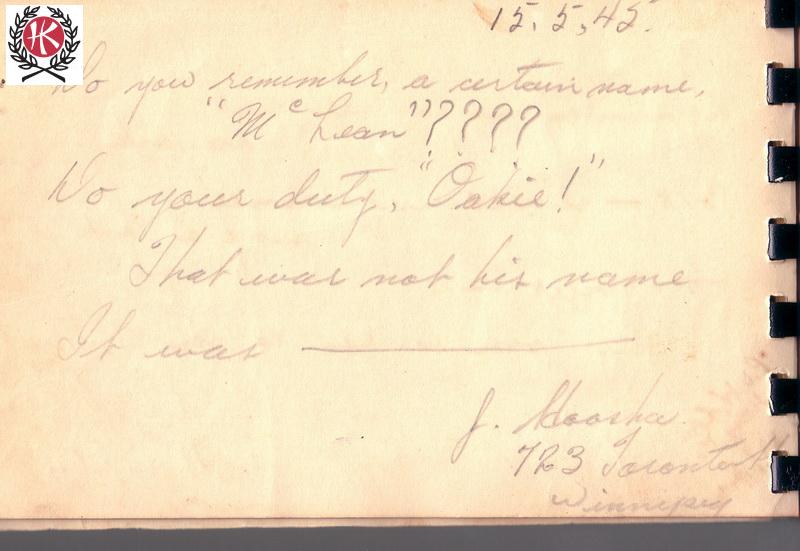 15.5.45.
Do you remember, a certain name,
"Mc Lean"????
Do your duty, "Oakie!"
That was not his name
It was
J.
723 Toronto St
Winnipeg
HK